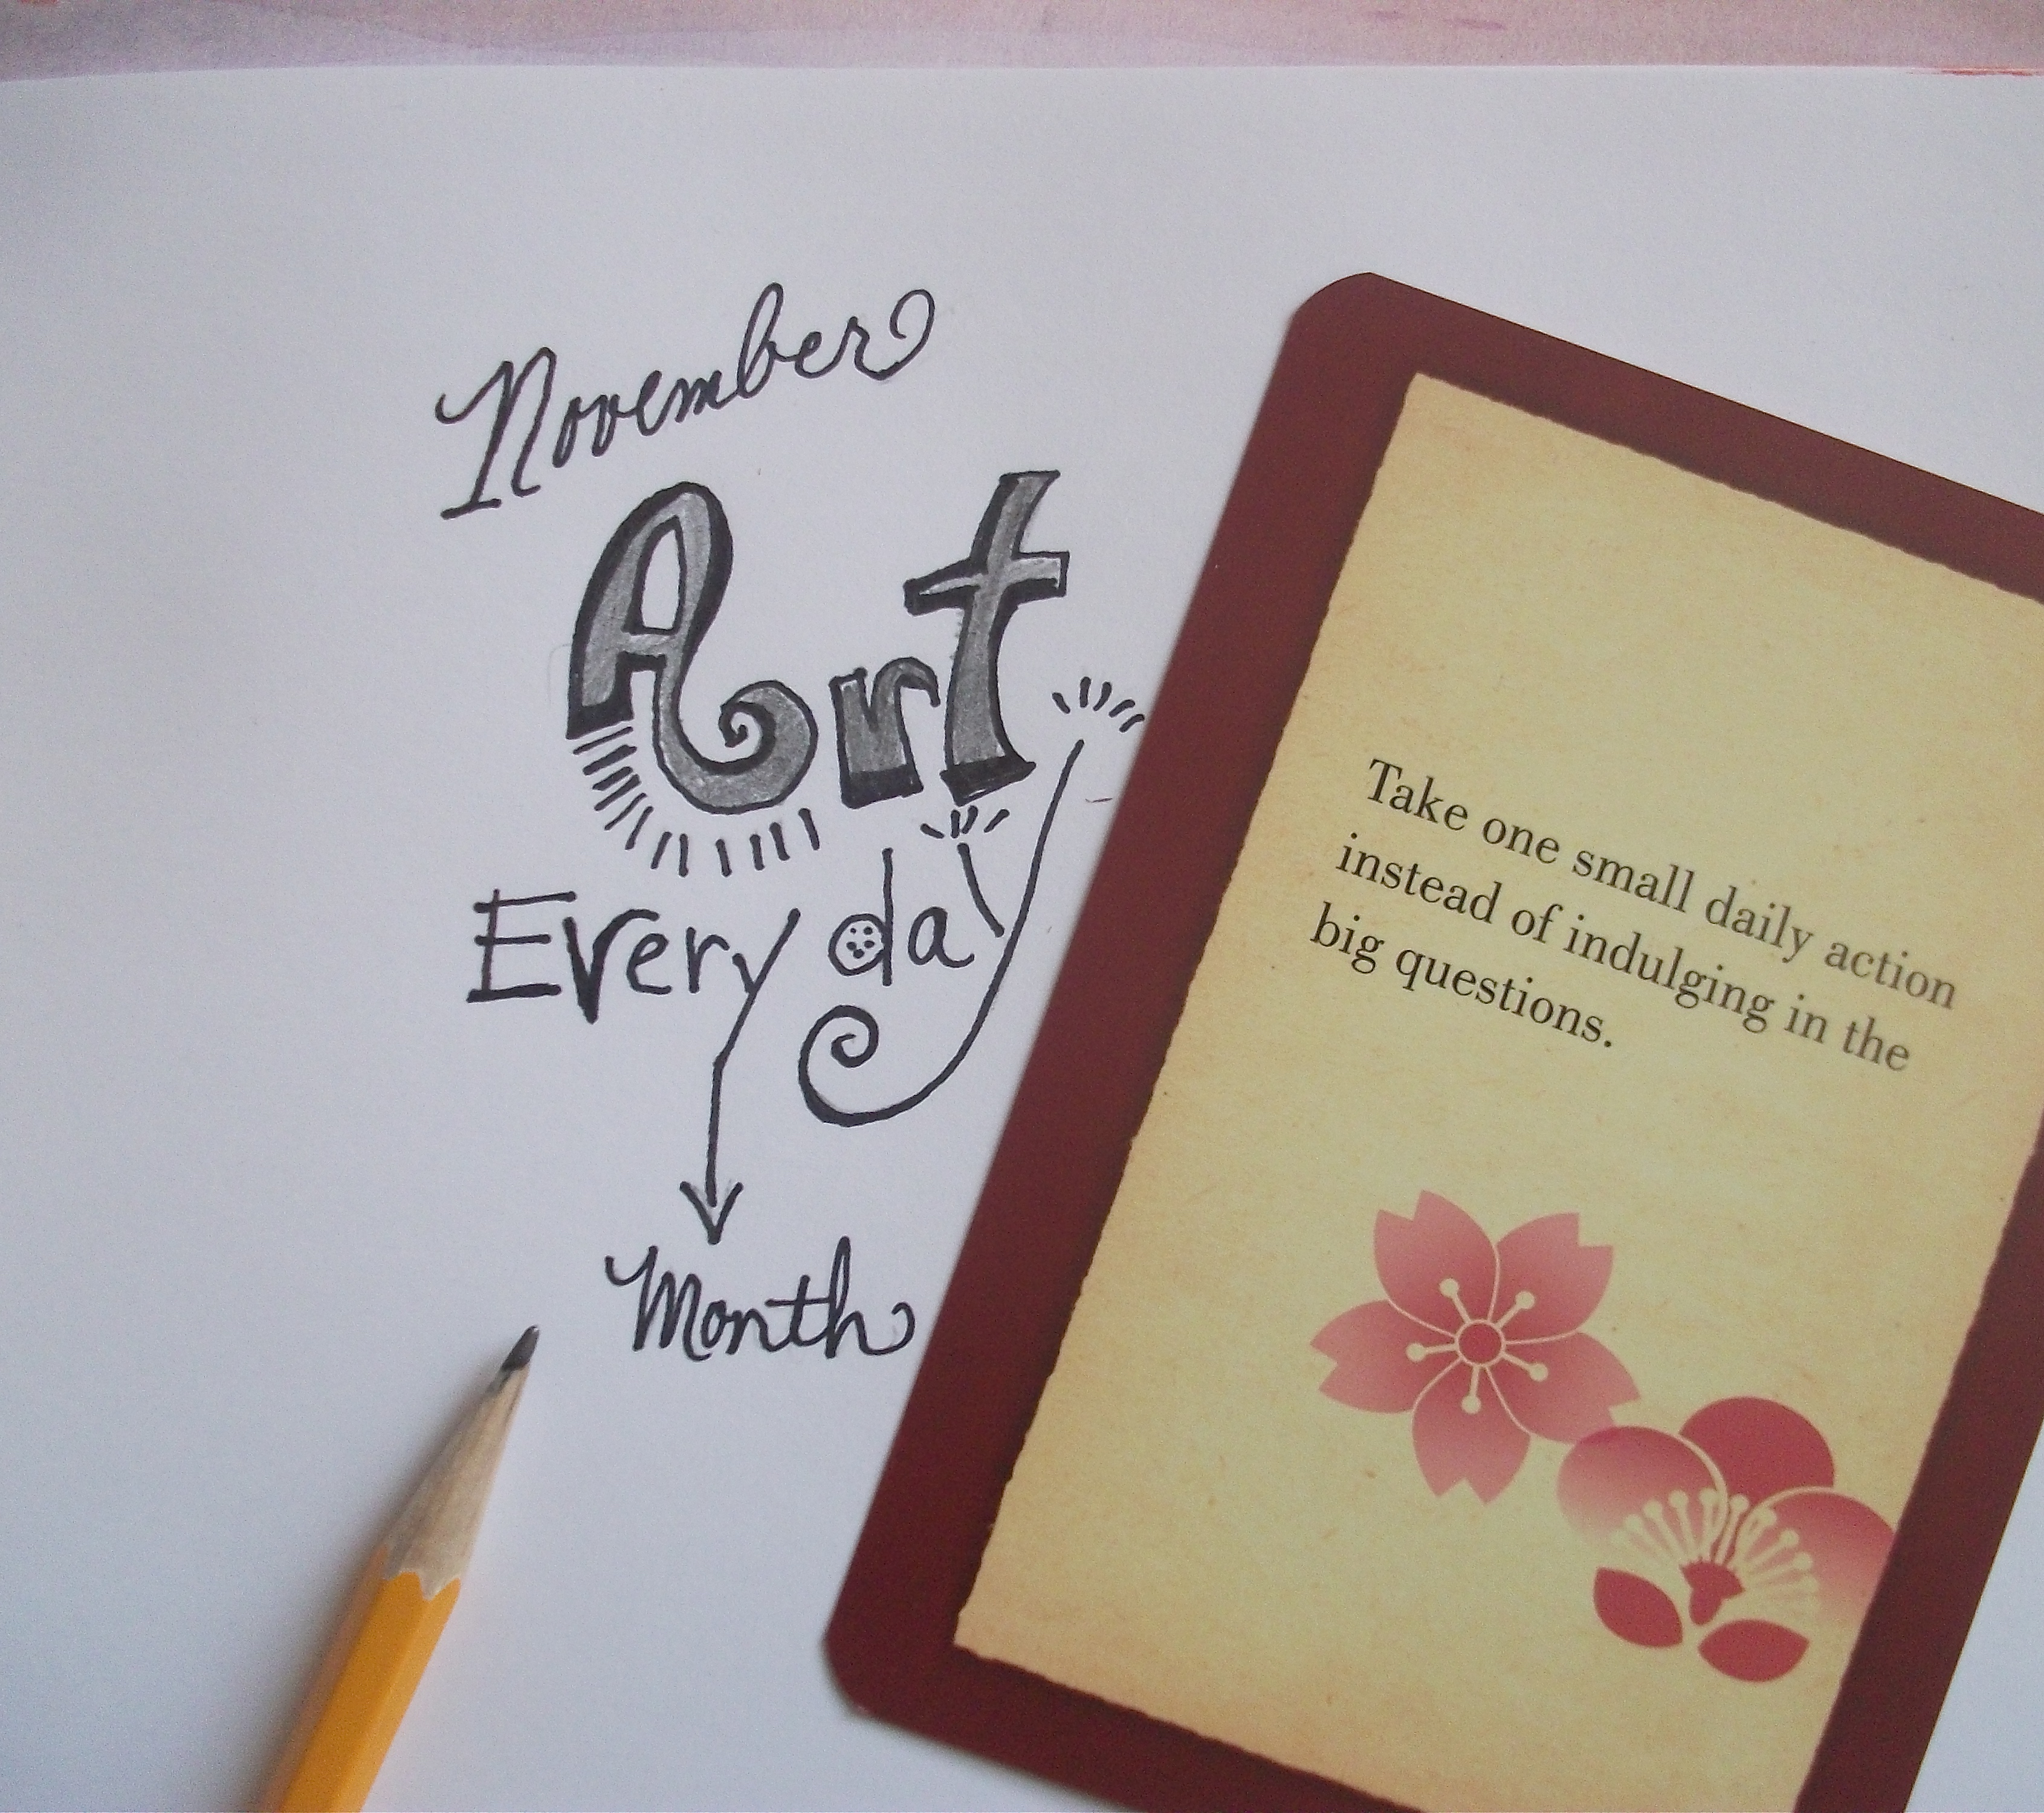 November
Art
Every day
Month
Take one small daily action
instead of indulging in the
big questions.